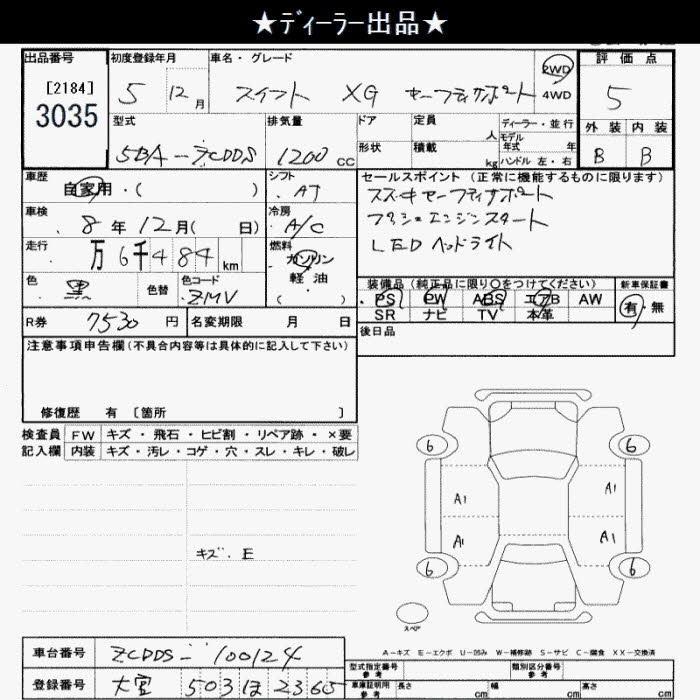 ★ディーラー出品★
出品番号 初度登録年月 車名・グレード 2WD 評価点
[2184] 5 12月 スイフト XG セーフティサポート 4WD 5
3035 型式 排気量 ドア 定員 人 ディーラー・並行 外装 内装
モデル年式 年
5BA-ZCDDS 1200 CC 形状 積載 kg ハンドル 左・右 B B
車歴 シフト セールスポイント (正常に機能するものに限ります)
自家用・( ) AT スズキセーフティサポート
車検 冷房 プッシュエンジンスタート
8年 12月( 日) A/C LEDヘッドライト
走行 燃料
万6千484 km ガソリン
色 色コード 軽・油 装備品 (純正品に限り○をつけてください) 新車保証書
黒 色替 ZMV ( ) PS PW ABS エアB AW 有・無
R券 7530 円 名変期限 月 日 SR ナビ TV 本革
注意事項申告欄(不具合内容等は具体的に記入して下さい) 後日品
修復歴 有 〔箇所 〕
検査員 FW キズ・飛石・ヒビ割・リペア跡・×要
記入欄 内装 キズ・汚レ・コゲ・穴・スレ・キレ・破レ
6 6
A1 A1
A1 A1
キズ.E
6 6
スペア
A-キズ E-エクボ U-凹み W-補修跡 S-サビ C-腐食 XX-交換済
車台番号 ZCDDS-100124
型式指定番号 参考 類別区分番号 参考
登録番号 大宮 503 は 2365
車庫証明用 参考 長さ cm 幅 cm 高さ cm